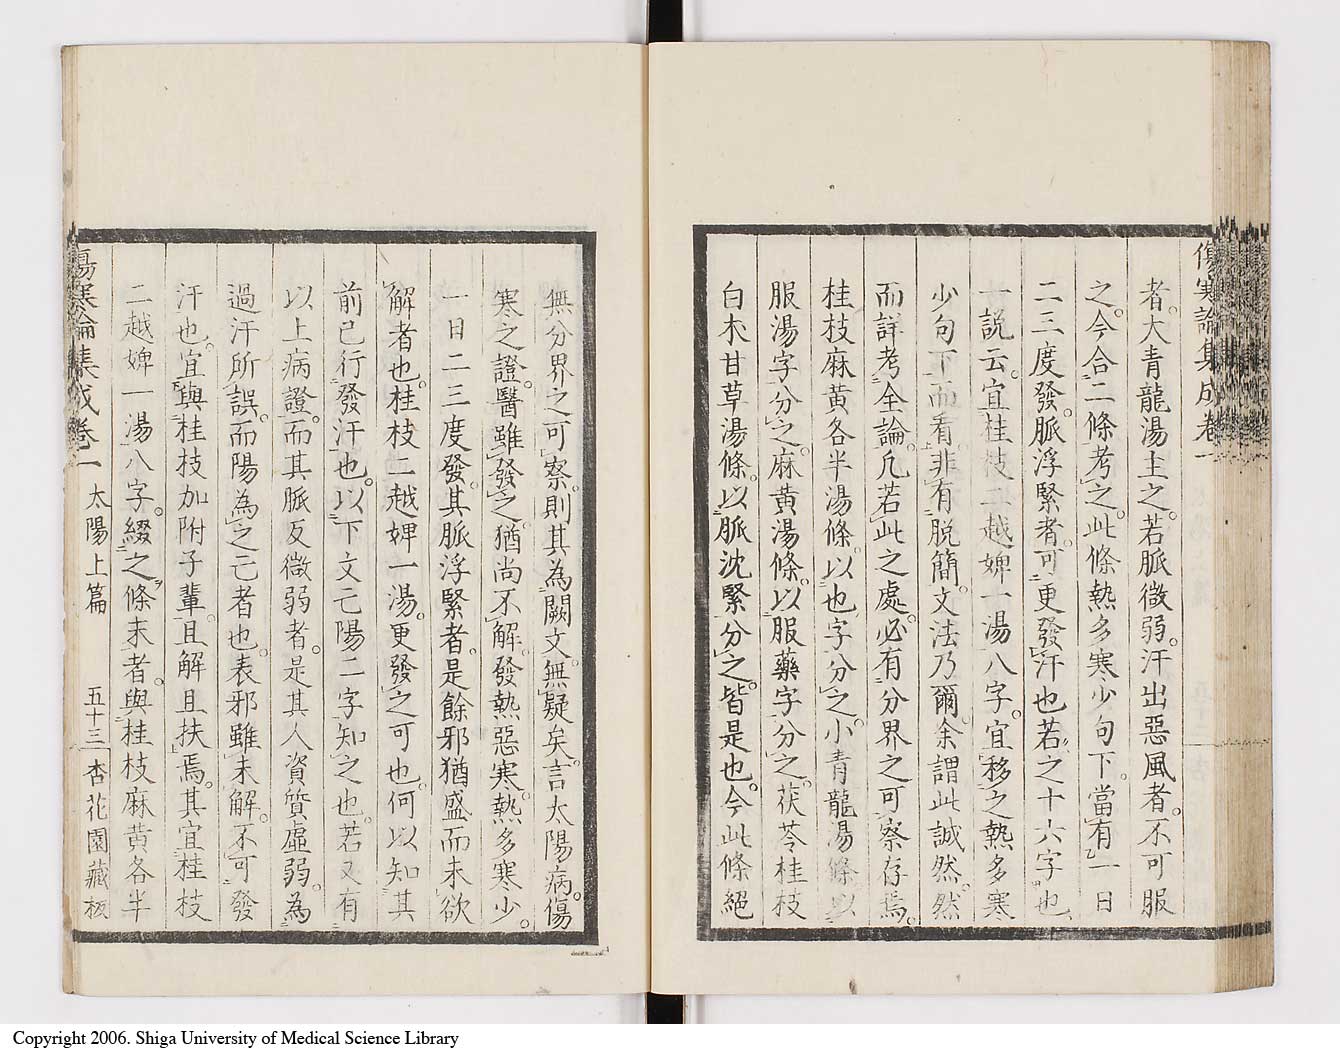 傷寒論集成卷一
者。大青龍湯主之。若脈微弱。汗出惡風者。不可服
之。今合二條考之。此條熱多寒少句下。當有一日
二三度發。脈浮緊者。可更發汗也。若之十六字也。
一説云。宜桂枝二越婢一湯八字。宜移之熱多寒
少句下而看。非有脱簡。文法乃爾。余謂此誠然。然
而詳考全論。凡若此之處。必有分界之可察存焉。
桂枝麻黄各半湯條。以也字分之。小青龍湯條。以
服湯字分之。麻黄湯條。以服藥字分之。茯苓桂枝
白朮甘草湯條。以脈沈緊分之。皆是也。今此條絕
無分界之可察。則其為闕文。無疑矣。言太陽病。傷
寒之證。醫雖發之。猶尚不解。發熱惡寒。熱多寒少。
一日二三度發。其脈浮緊者。是餘邪猶盛而未欲
解者也。桂枝二越婢一湯。更發之可也。何以知其
前已行發汗也。以下文亡陽二字知之也。若又有
以上病證。而其脈反微弱者。是其人資質虛弱。為
過汗所誤。而陽為之亡者也。表邪雖未解。不可發
汗也。宜與桂枝加附子輩。且解且扶焉。其宜桂枝
二越婢一湯八字。綴之條末者。與桂枝麻黄各半
傷寒論集成卷一 太陽上篇 五十三 杏花園藏板
Copyright 2006. Shiga University of Medical Science Library